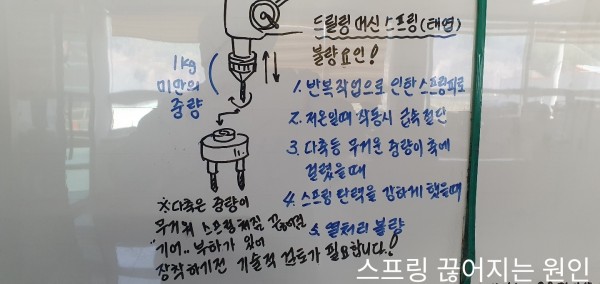 드릴링 머신 스프링 (태엽)
불량요인!
1kg
미만의
중량
1. 반복작업으로 인한 스프링피로
2. 저온일때 작동시 급속절단
3. 다축등 무거운 중량이 축에
걸렸을때
4. 스프링 탄력을 강하게 했을때
5. 열처리 불량
※다축은 중량이
무거워 스프링 쳐짐 끊어짐
"기어.. 부하가 있어
장착하기전 기술적 검토가 필요합니다!
스프링 끊어지는 원인